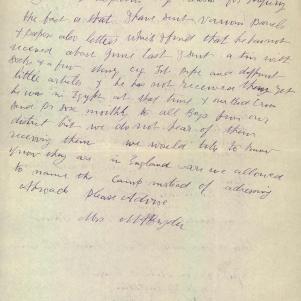 the fact is that I have sent various Parcels
& papers also letters which I find that he has not
received about June last I sent a tin with
Socks & a few things cig Tob Pipe and different
little articles & he has not received them yet
he was in Egypt at that time & our Red Cross
send Pr Sox monthly to all Boys from our
district but we do not hear of them
receiving them we would like to know
if now they are in England are we allowed
to name the Camp instead of adressing
abroad Please Advise
Mrs